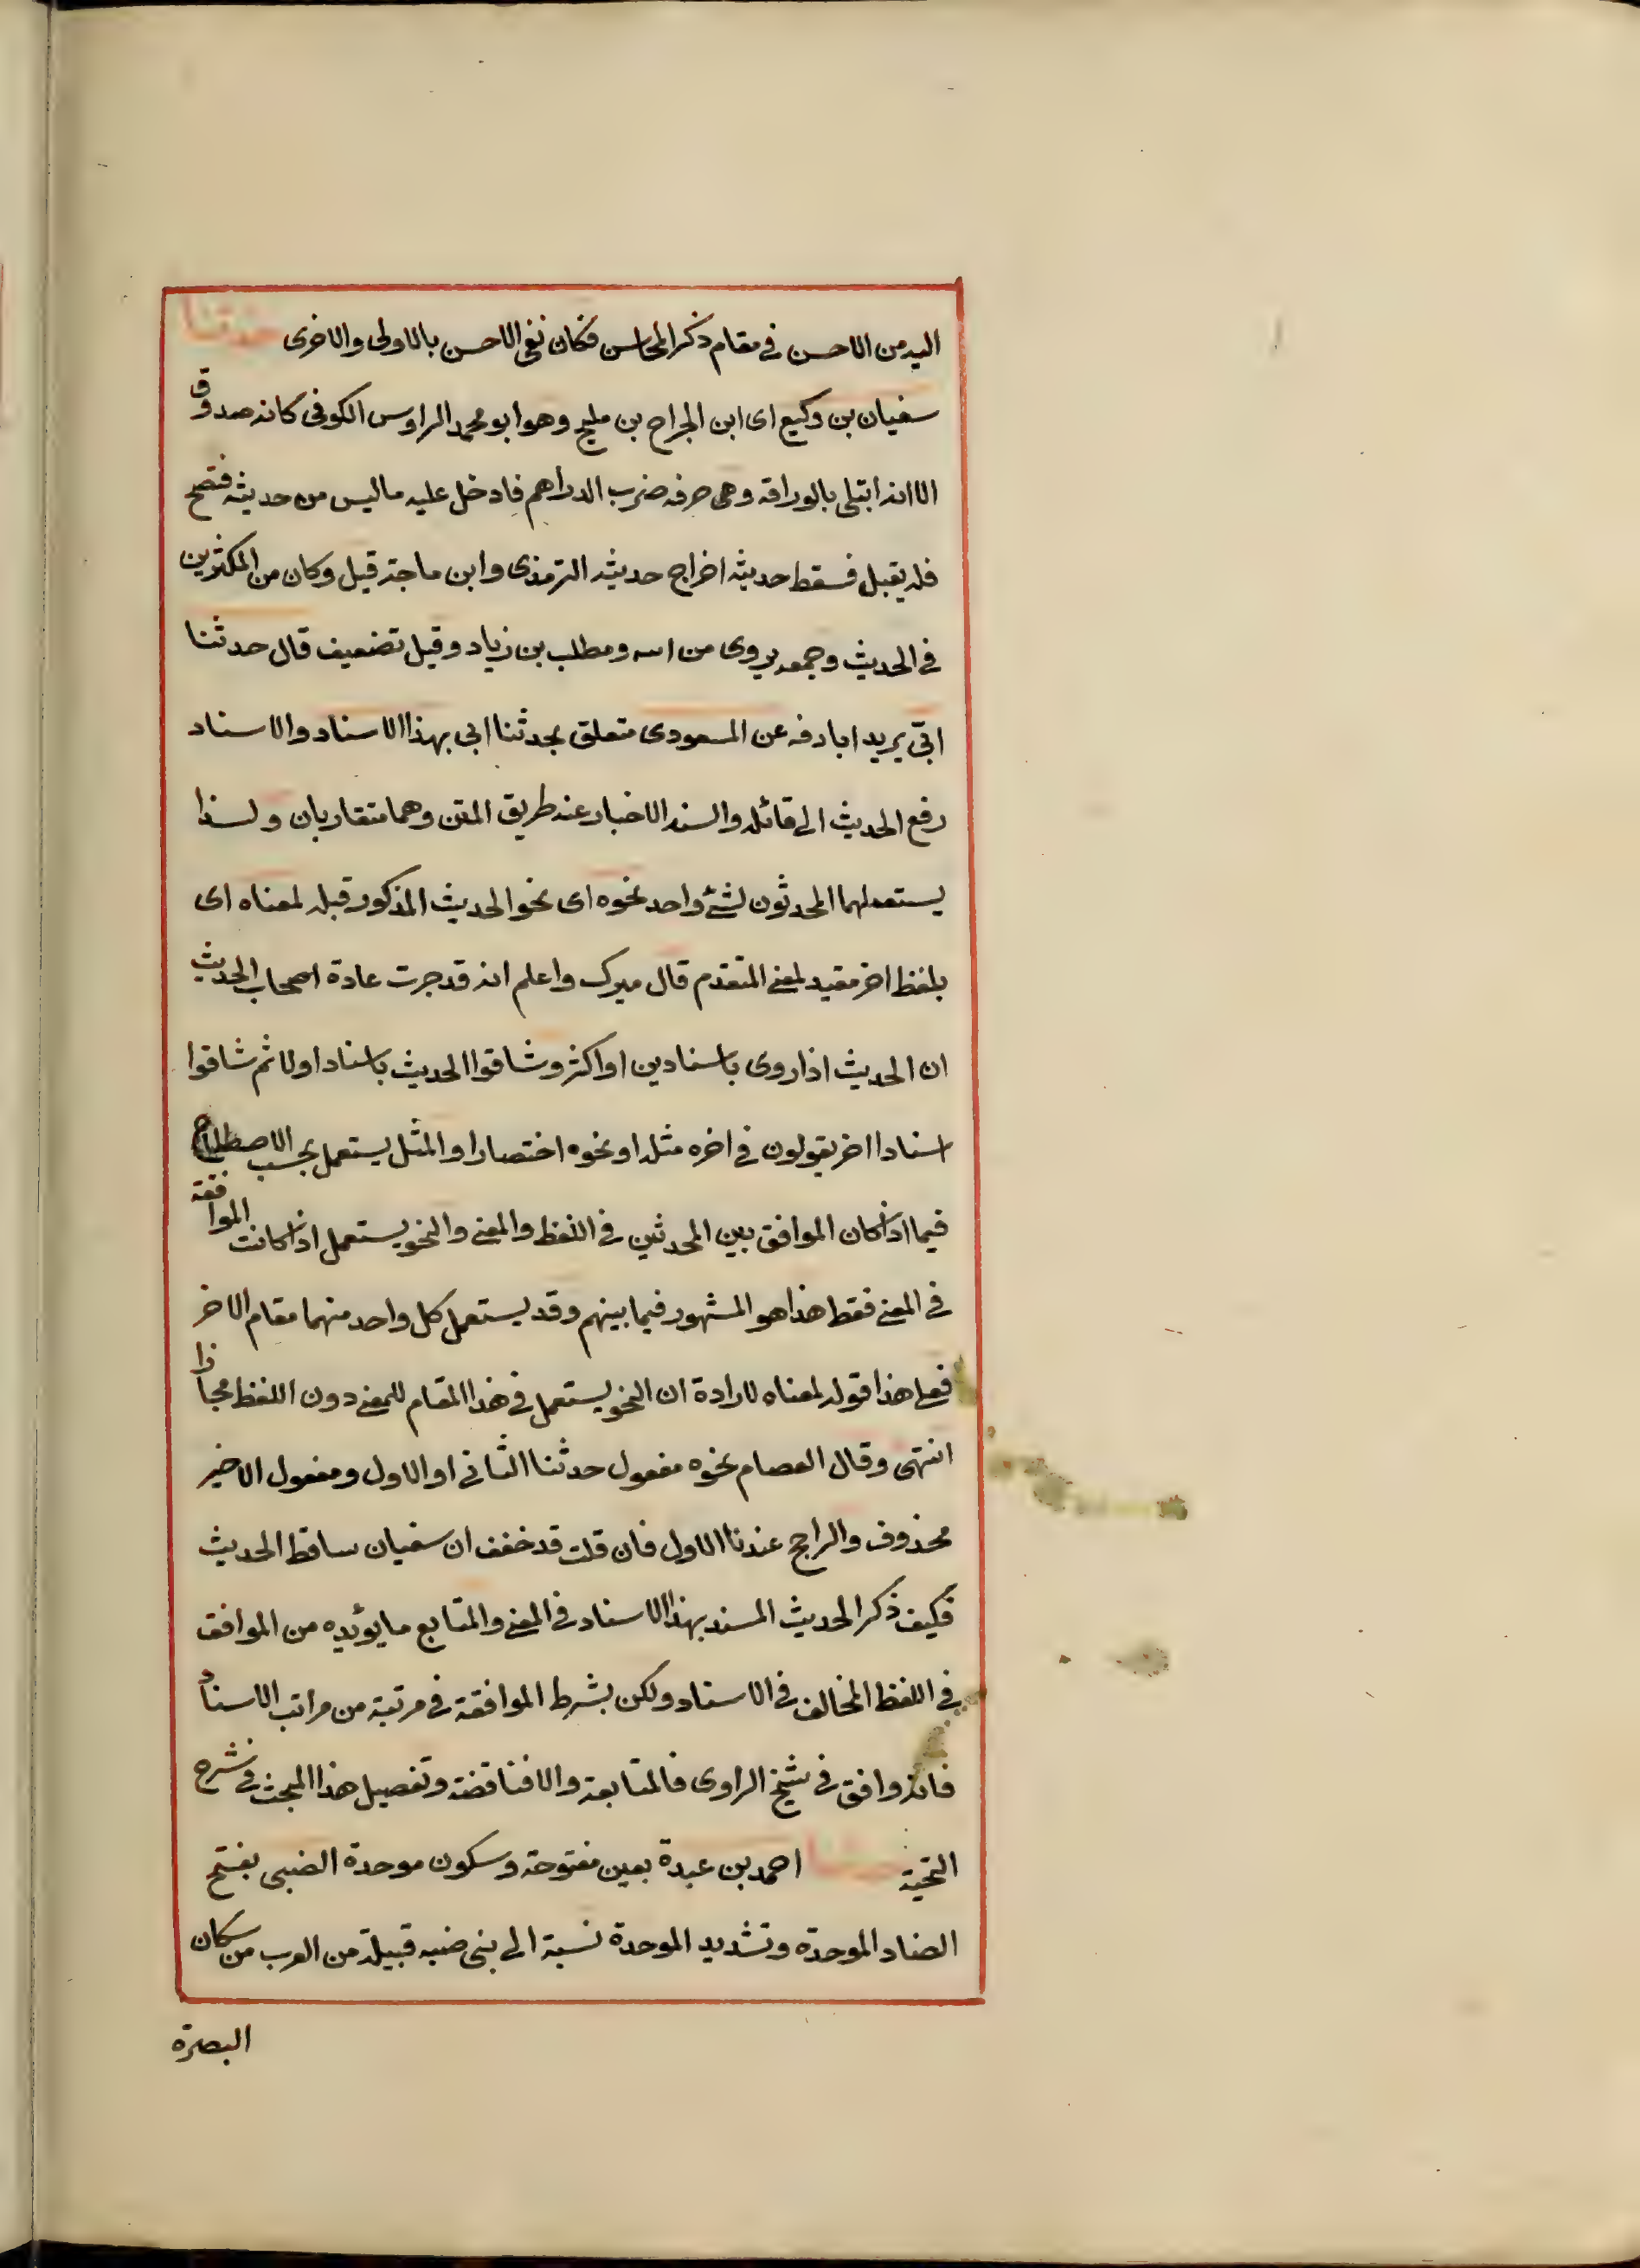 اليه من الاحسن في مقام ذكر المحاسن فكان نفى الاحسن بالاولى والاخرى حدثنا
سفيان بن وكيع اى ابن الجراح بن مليح وهو ابو محمد الراوس الكوفى كانه صدوق
الا انه ابتلى بالوراقة وهى حرفه ضرب الدراهم فادخل عليه ما ليس من حديثه فنصح
فلم يقبل فسقط حديثه اخراج حديثه الترمذى وابن ماجة قيل وكان من المكثرين
في الحديث وجمعه يروى من ابيه ومطلب بن زياد وقيل تضعيف قال حدثنا
ابى يريد اباد فه عن المسعودى متعلق بحدثنا ابى بهذا الاسناد والاسناد
رفع الحديث الى قائله والسند الاخبار عنه طريق المتن وهما متقاربان ولسذا
يستعملهما المحدثون لشئ واحد نحوه اى نحو الحديث المذكور قبله لمعناه اى
بلفظ اخر مقيد لمعنى المتقدم قال ميرك واعلم انه قد جرت عادة اصحاب الحديث
ان الحديث اذا روى باسنادين او اكثر وشاقوا الحديث باسناد اولا ثم شاقوا
اسنادا اخر يقولون في اخره مثله او نحوه اختصارا والمثل يستعمل بحسب الاصطلاح
فيما اذا كان الموافق بين المحدثين في اللفظ والمعنى والنحو يستعمل اذا كانت الموافقة
في المعنى فقط هذا هو المشهور فيما بينهم وقد يستعمل كل واحد منهما مقام الاخر
فعلى هذا قوله لمعناه للارادة ان النحو يستعمل في هذا المقام للمعنى دون اللفظ مجازا
انتهى وقال العصام نحوه مفعول حدثنا الثانى او الاول ومفعول الاخير
محذوف والراجح عندنا الاول فان قلت قد خفف ان سفيان ساقط الحديث
فكيف ذكر الحديث المسند بهذا الاسناد في المعنى والمتابع ما يؤيده من الموافق
في اللفظ المخالف في الاسناد ولكن بشرط الموافقة في مرتبة من مراتب الاسناد
فانه وافق في شيخ الراوى فالمتابعة والا فناقضة وتفصيل هذا المبحث في شرح
النخبة حدثنا احمد بن عبدة بعين مفتوحة وسكون موحدة الضبى بفتح
الضاد الموحدة وتشديد الموحدة نسبة الى بنى ضبه قبيلة من العرب من سكان
البصرة